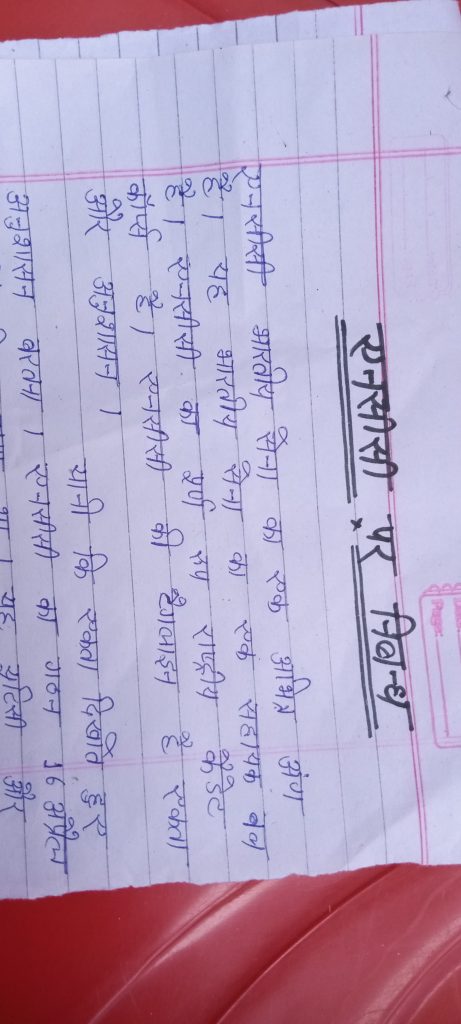 एनसीसी पर निबन्ध
एनसीसी भारतीय सेना का एक अभिन्न अंग
है। यह भारतीय सेना का एक सहायक बल
है। एनसीसी का पूर्ण रूप राष्ट्रीय कैडेट
कोर्प्स है। एनसीसी की टैगलाइन है एकता
और अनुशासन।
यानी कि एकता दिखाते हुए
अनुशासन बरतना। एनसीसी का गठन 16 अप्रैल
था। यह यूटिसी और
Page: